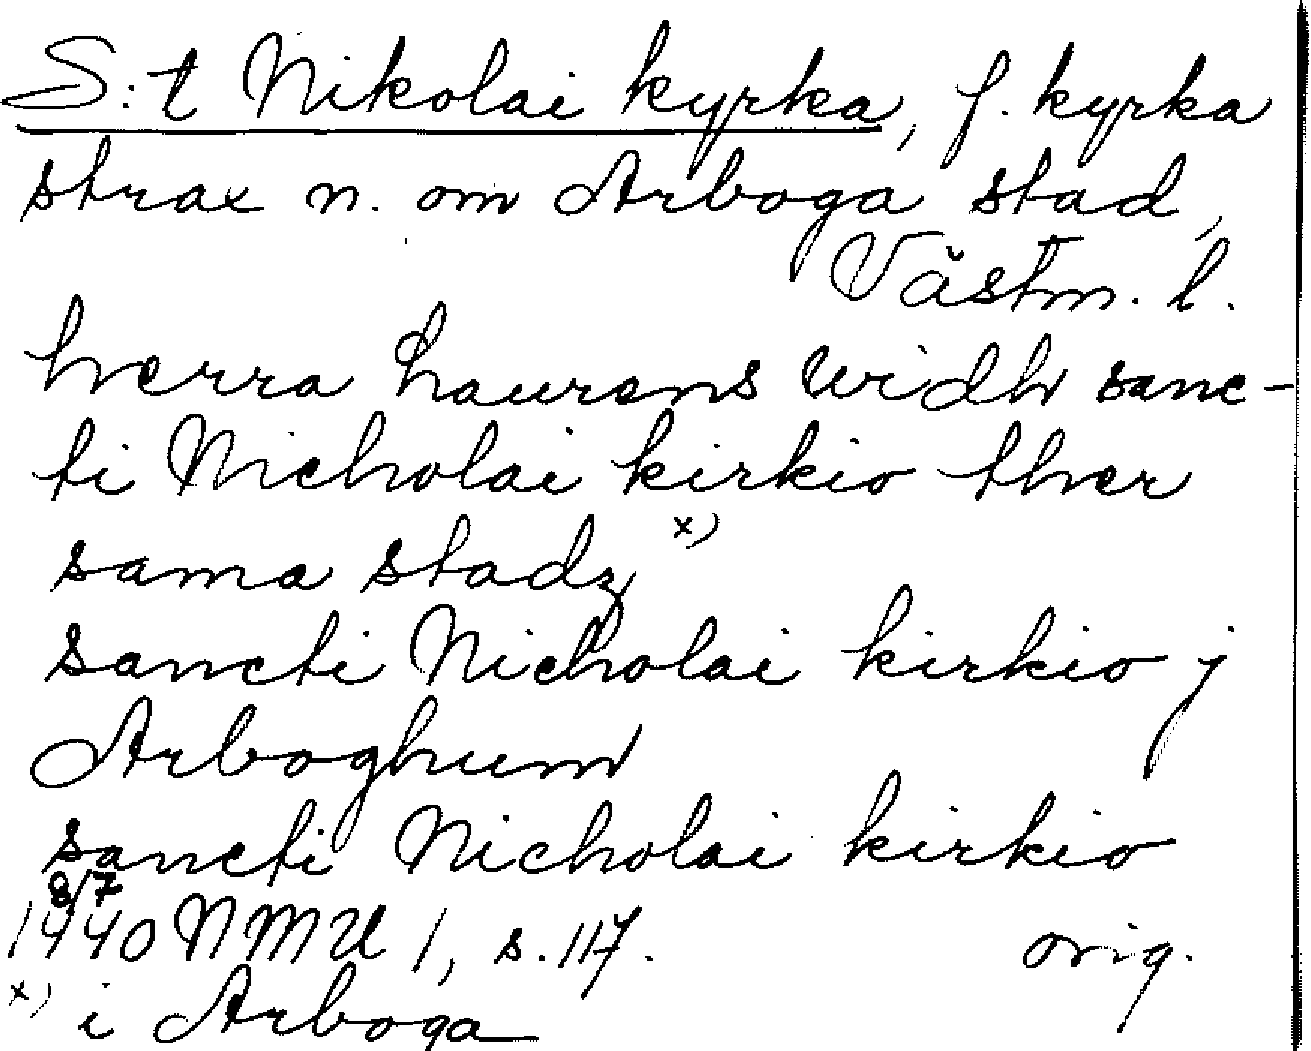 S:t Nikolai kyrka, f. kyrka
strax n. om Arboga stad,
Västm. l.
herra Laurens widh sanc-
ti Nicholai kirkio ther
sama stadz x)
sancti Nicholai kirkio j
Arboghum
sancti Nicholai kirkio
8/7
1440 NMU 1, s. 117. orig.
x) i Arboga